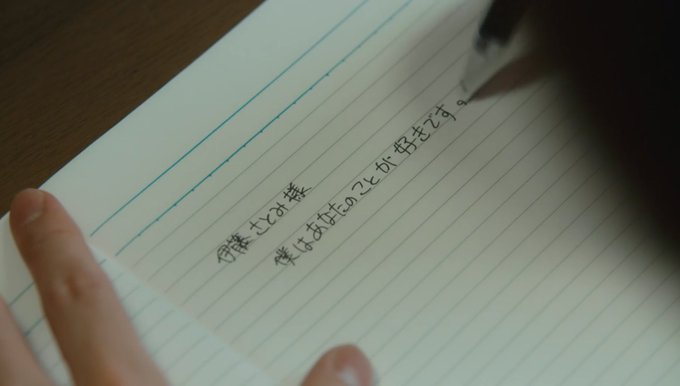 伊藤さとみ様
僕はあなたのことが好きです。